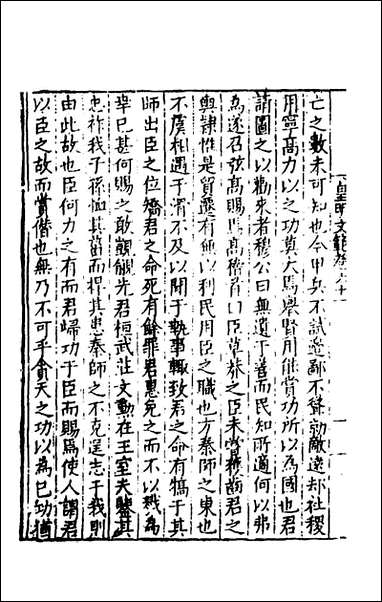 亡之數未可知也今甲兵不試邊鄙不聳勍敵遠却社稷
用寧高力以之功莫大焉舉賢用能賞功所以為國也君
請圖之以勸來者穆公曰無遺于善而民知所適何以弗
為遂召弦高賜焉高稽首曰臣草莽之臣未嘗獲齒君之
輿隸惟是貿遷有師以利民用臣之職也方秦師之東也
不虞相遇于滑不及以聞于執事輙致君之命有犒于其
師出臣之位矯君之命死有餘罪君惠免之而不以戮為
幸已甚何賜之敢覬覦先君桓武莊文勳在王室天鑒其
忠祚我子孫恤其菑而捍其患秦師之不克逞志于我則
由此故也臣何力之有而君歸功于臣而賜焉使人謂君
以臣之故而賞僭也無乃不可乎貪天之功以為己功猶
皇明文範卷六十